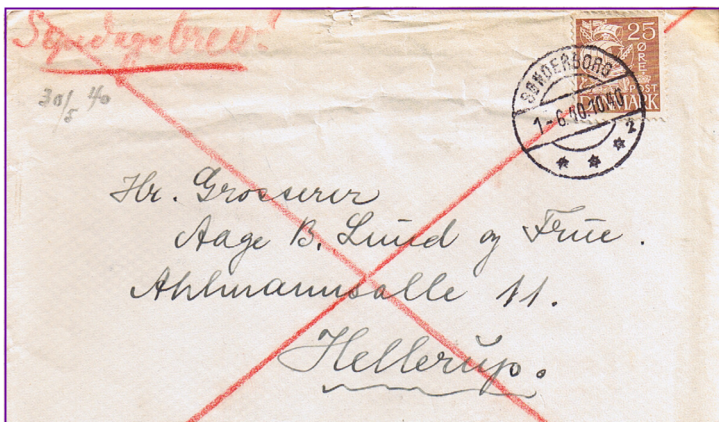 Søndagsbrev!
30/5 40
25
ØRE
POST
DANMARK
SØNDERBORG
1-6.40.10.40
2
Hr. Grosserer
Aage B. Lund og Frue.
Ahlmannsalle 11.
Hellerup.